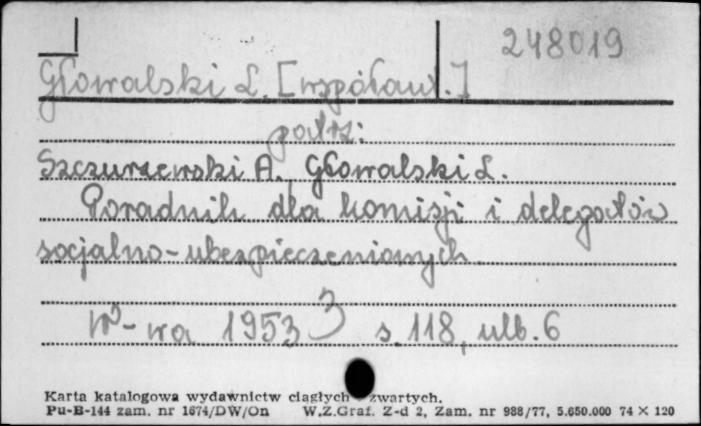 248019
Głowalski L. [współaut.]
patrz:
Szczurzewski A. Głowalski L.
Poradnik dla komisji i delegatów
socjalno-ubezpieczeniowych.
W-wa 1953 s. 118, ulb. 6
Karta katalogowa wydawnictw ciągłych zwartych.
Pu-B-144 zam. nr 1674/DW/On W.Z.Graf. Z-d 2, Zam. nr 988/77, 5.650.000 74 X 120